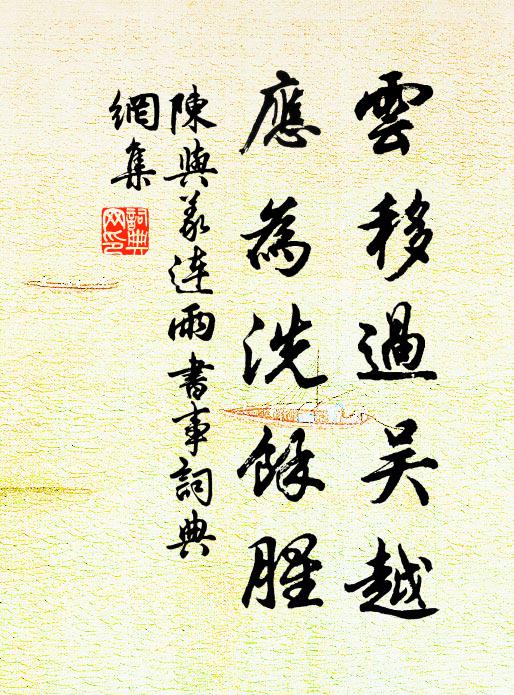 雲移過吴越
應為洗餘腥
陳與義連雨書事詞典
網集
詞典
网印